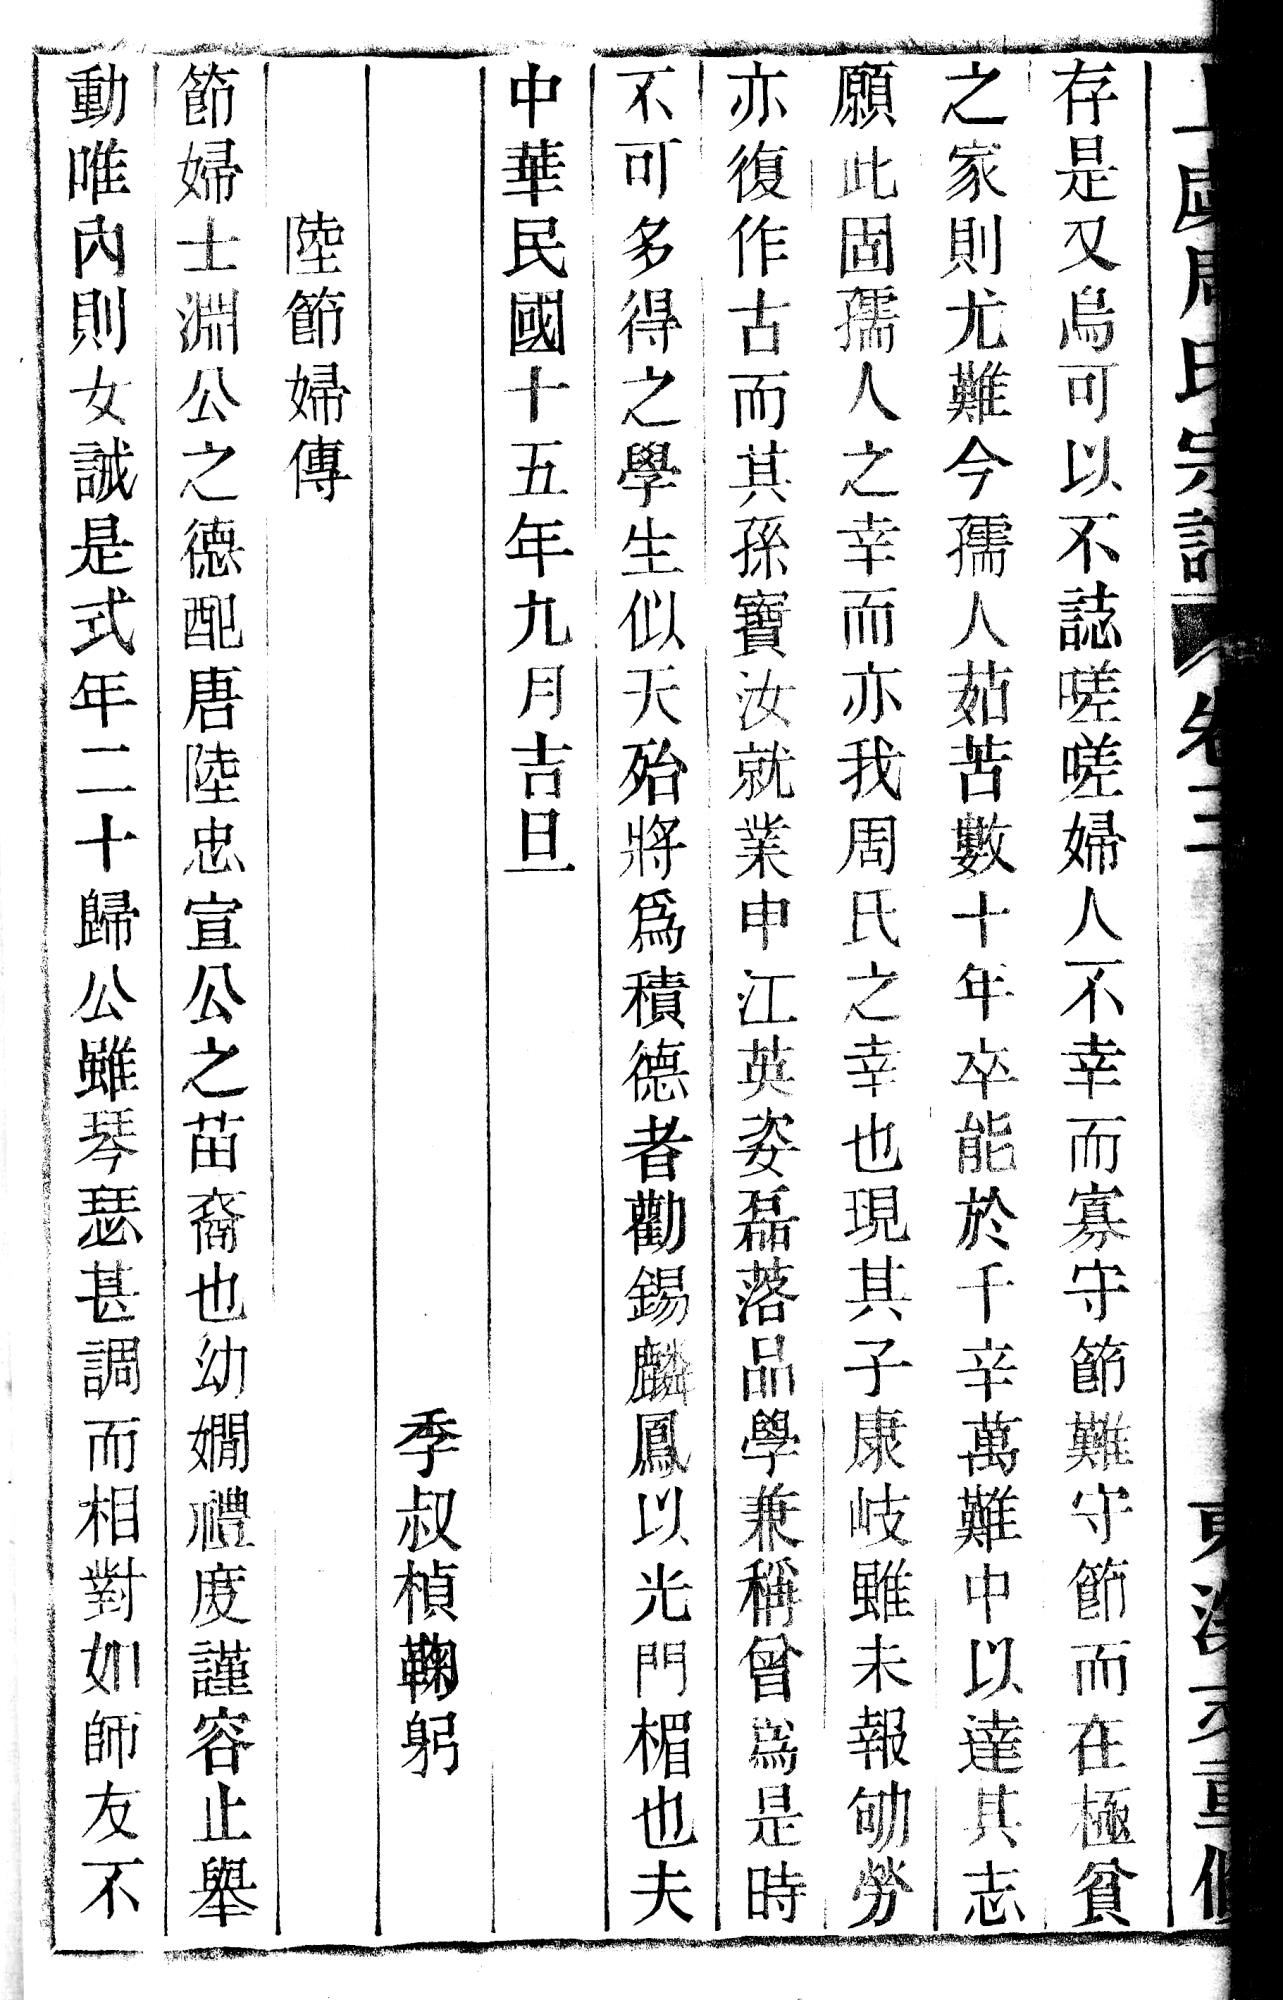 存是又烏可以不誌嗟嗟婦人不幸而寡守節難守節而在極貧
之家則尤難今孺人茹苦數十年卒能於千辛萬難中以達其志
願此固孺人之幸而亦我周氏之幸也現其子康岐雖未報劬勞
亦復作古而其孫寶汝就業申江英姿磊落品學兼稱曾爲是時
不可多得之學生似天殆將爲積德者勸錫麟鳳以光門楣也夫
中華民國十五年九月吉旦
季叔楨鞠躬
陸節婦傳
節婦士淵公之德配唐陸忠宣公之苗裔也幼嫻禮度謹容止舉
動唯內則女誡是式年二十歸公雖琴瑟甚調而相對如師友不